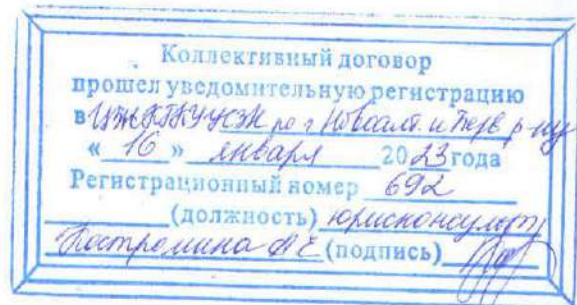 Коллективный договор
прошел уведомительную регистрацию
в ЦЖ КГКУ УСЗН по г Новоалт. и Перв. р-ну
« 16 » января 2023 года
Регистрационный номер 692
(должность) юрисконсульт
Костромина (подпись)